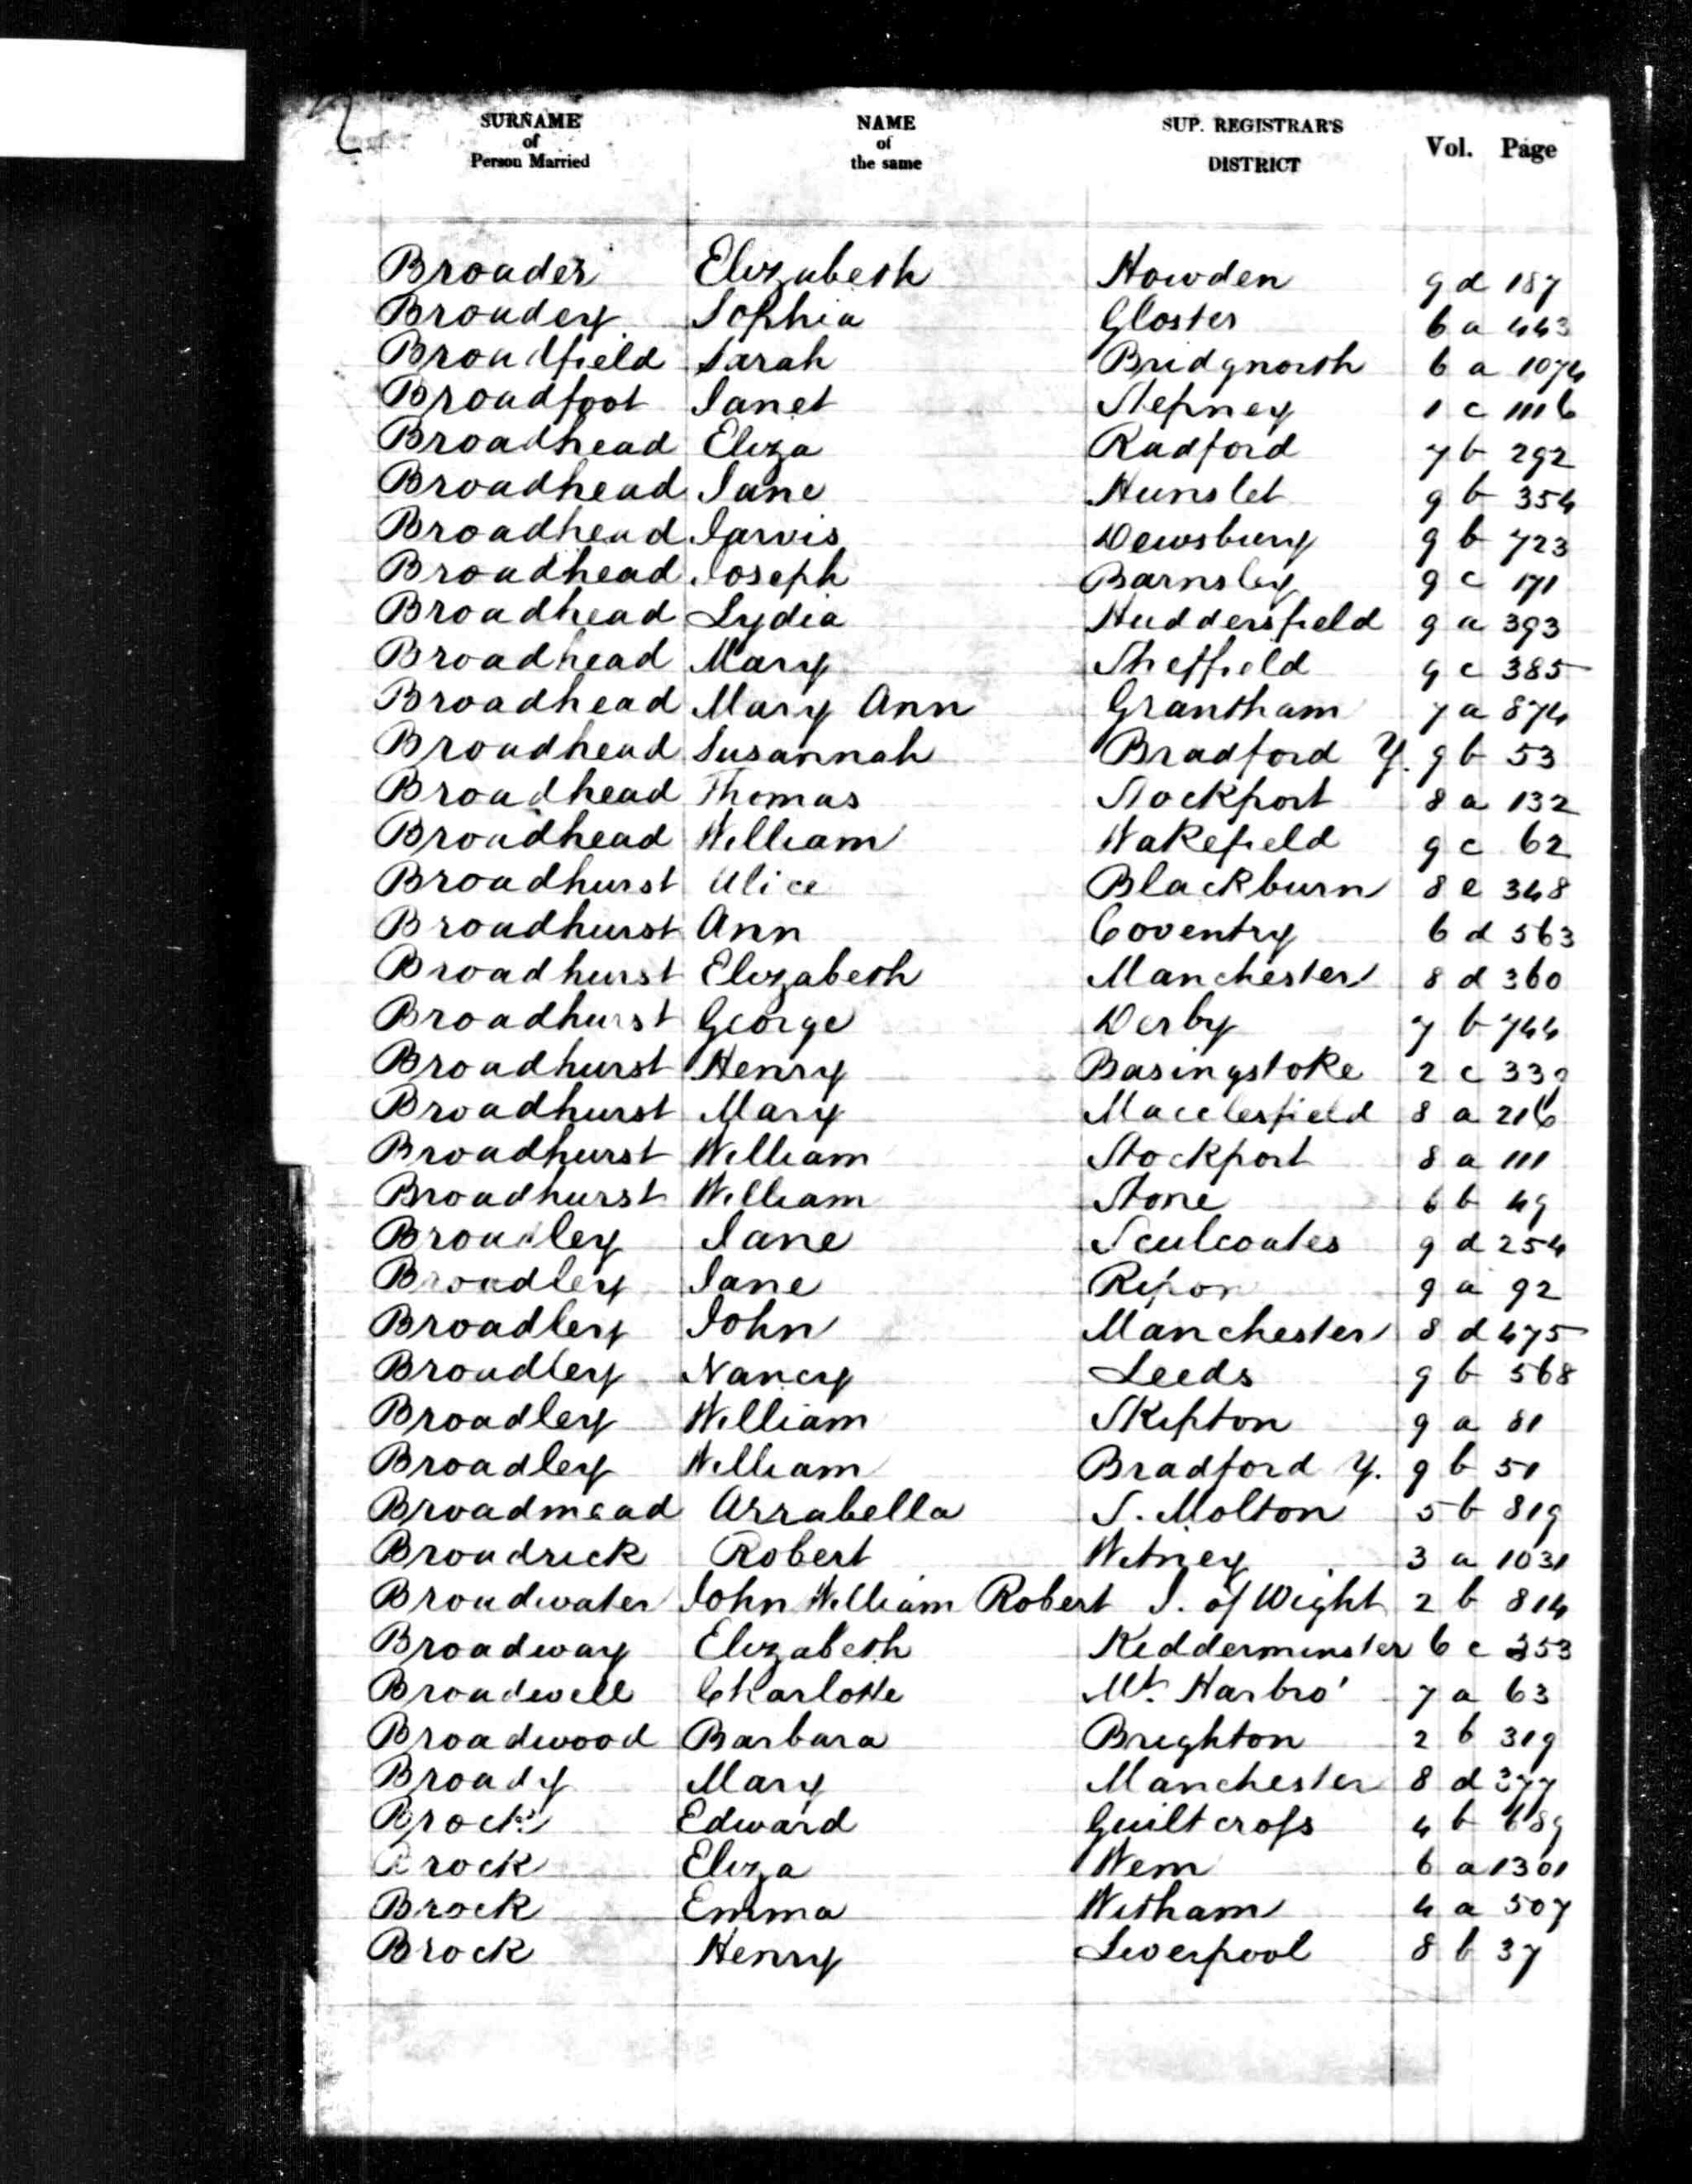 SURNAME of Person Married NAME of the same SUP. REGISTRAR'S DISTRICT Vol. Page
Broader Elizabeth Howden 9 d 187
Broadey Sophia Gloster 6 a 443
Broadfield Sarah Bridgnorth 6 a 1074
Broadfoot Janet Stepney 1 c 1116
Broadhead Eliza Radford 7 b 292
Broadhead Jane Hunslet 9 b 354
Broadhead Jarvis Dewsbury 9 b 723
Broadhead Joseph Barnsley 9 c 171
Broadhead Lydia Huddersfield 9 a 393
Broadhead Mary Sheffield 9 c 385
Broadhead Mary Ann Grantham 7 a 874
Broadhead Susannah Bradford Y. 9 b 53
Broadhead Thomas Stockport 8 a 132
Broadhead William Wakefield 9 c 62
Broadhurst Alice Blackburn 8 e 348
Broadhurst Ann Coventry 6 d 563
Broadhurst Elizabeth Manchester 8 d 360
Broadhurst George Derby 7 b 744
Broadhurst Henry Basingstoke 2 c
Broadhurst Mary Macclesfield 8 a 216
Broadhurst William Stockport 8 a 111
Broadhurst William Stone 6 b 49
Broadley Jane Sculcoates 9 d 254
Broadley Jane Ripon 9 a 92
Broadley John Manchester 8 d 475
Broadley Nancy Leeds 9 b 568
Broadley William Skipton 9 a 81
Broadley William Bradford Y. 9 b 51
Broadmead Arrabella S. Molton 5 b 819
Broadrick Robert Witney 3 a 1031
Broadwater John William Robert I. of Wight 2 b 814
Broadway Elizabeth Kidderminster 6 c 353
Broadwell Charlotte Mt. Harbro' 7 a 63
Broadwood Barbara Brighton 2 b 319
Broady Mary Manchester 8 d 377
Brock Edward Guiltcross 4 b 689
Brock Eliza Wem 6 a 1301
Brock Emma Witham 4 a 507
Brock Henry Liverpool 8 b 37